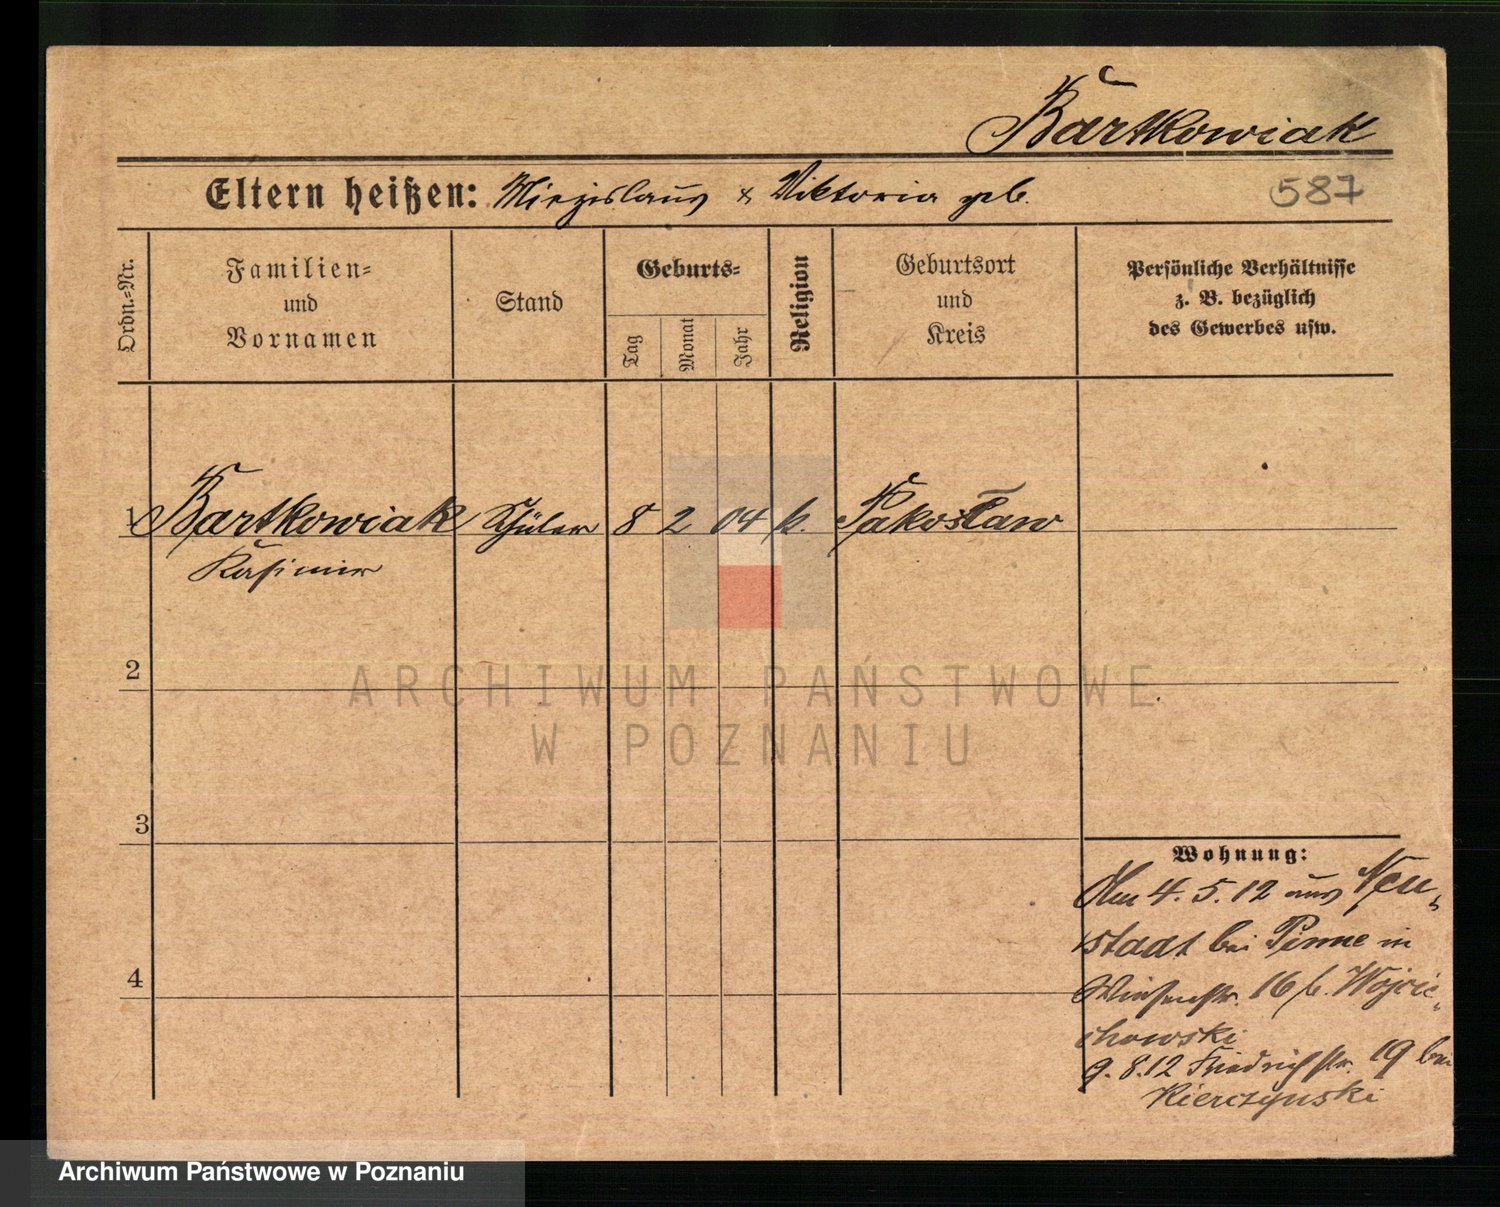 Bartkowiak
Eltern heißen: Miezislaus & Viktoria geb.
587
Ordn.=Nr.
Familien=
und
Vornamen
Stand
Geburts=
Tag
Monat
Jahr
Religion
Geburtsort
und
Kreis
Persönliche Verhältnisse
z. B. bezüglich
des Gewerbes usw.
1 Bartkowiak Schüler 8 2 04 k. Pakosław
Kasimir
2
ARCHIWUM PAŃSTWOWE
W POZNANIU
3
Wohnung:
Am 4. 5. 12 aus Neu-
stadt bei Pinne in
4
16 b. Wojcie-
chowski
9. 8. 12 Friedrichstr. 19 bei
Kierczynski
Archiwum Państwowe w Poznaniu